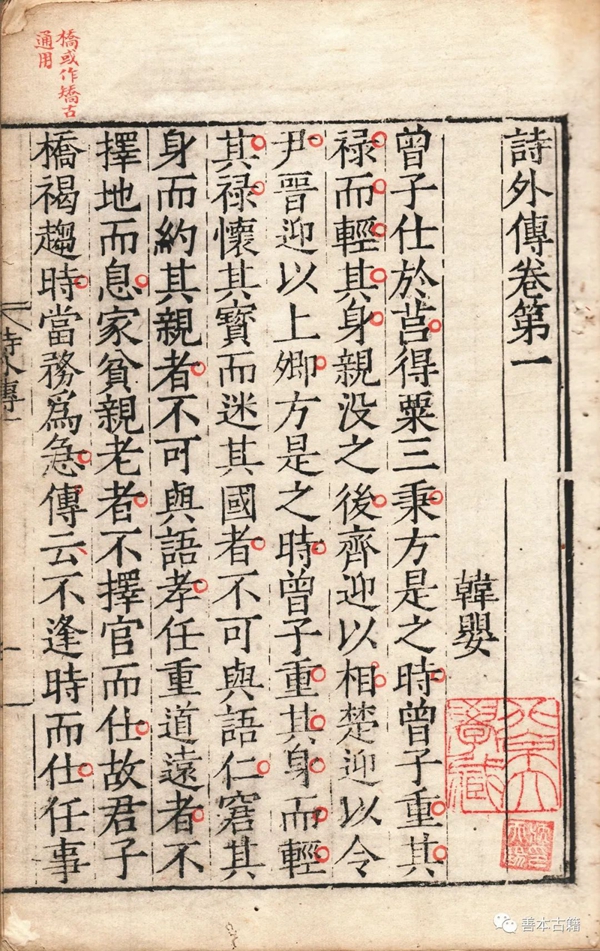 詩外傳卷第一
韓嬰
曾子仕於莒得粟三秉方是之時曾子重其
禄而輕其身親没之後齊迎以相楚迎以令
尹晉迎以上卿方是之時曾子重其身而輕
其禄懷其寶而迷其國者不可與語仁窘其
身而約其親者不可與語孝任重道遠者不
擇地而息家貧親老者不擇官而仕故君子
橋褐趨時當務爲急傳云不逢時而仕任事
橋或作矯古
通用
詩外傳一
善本古籍